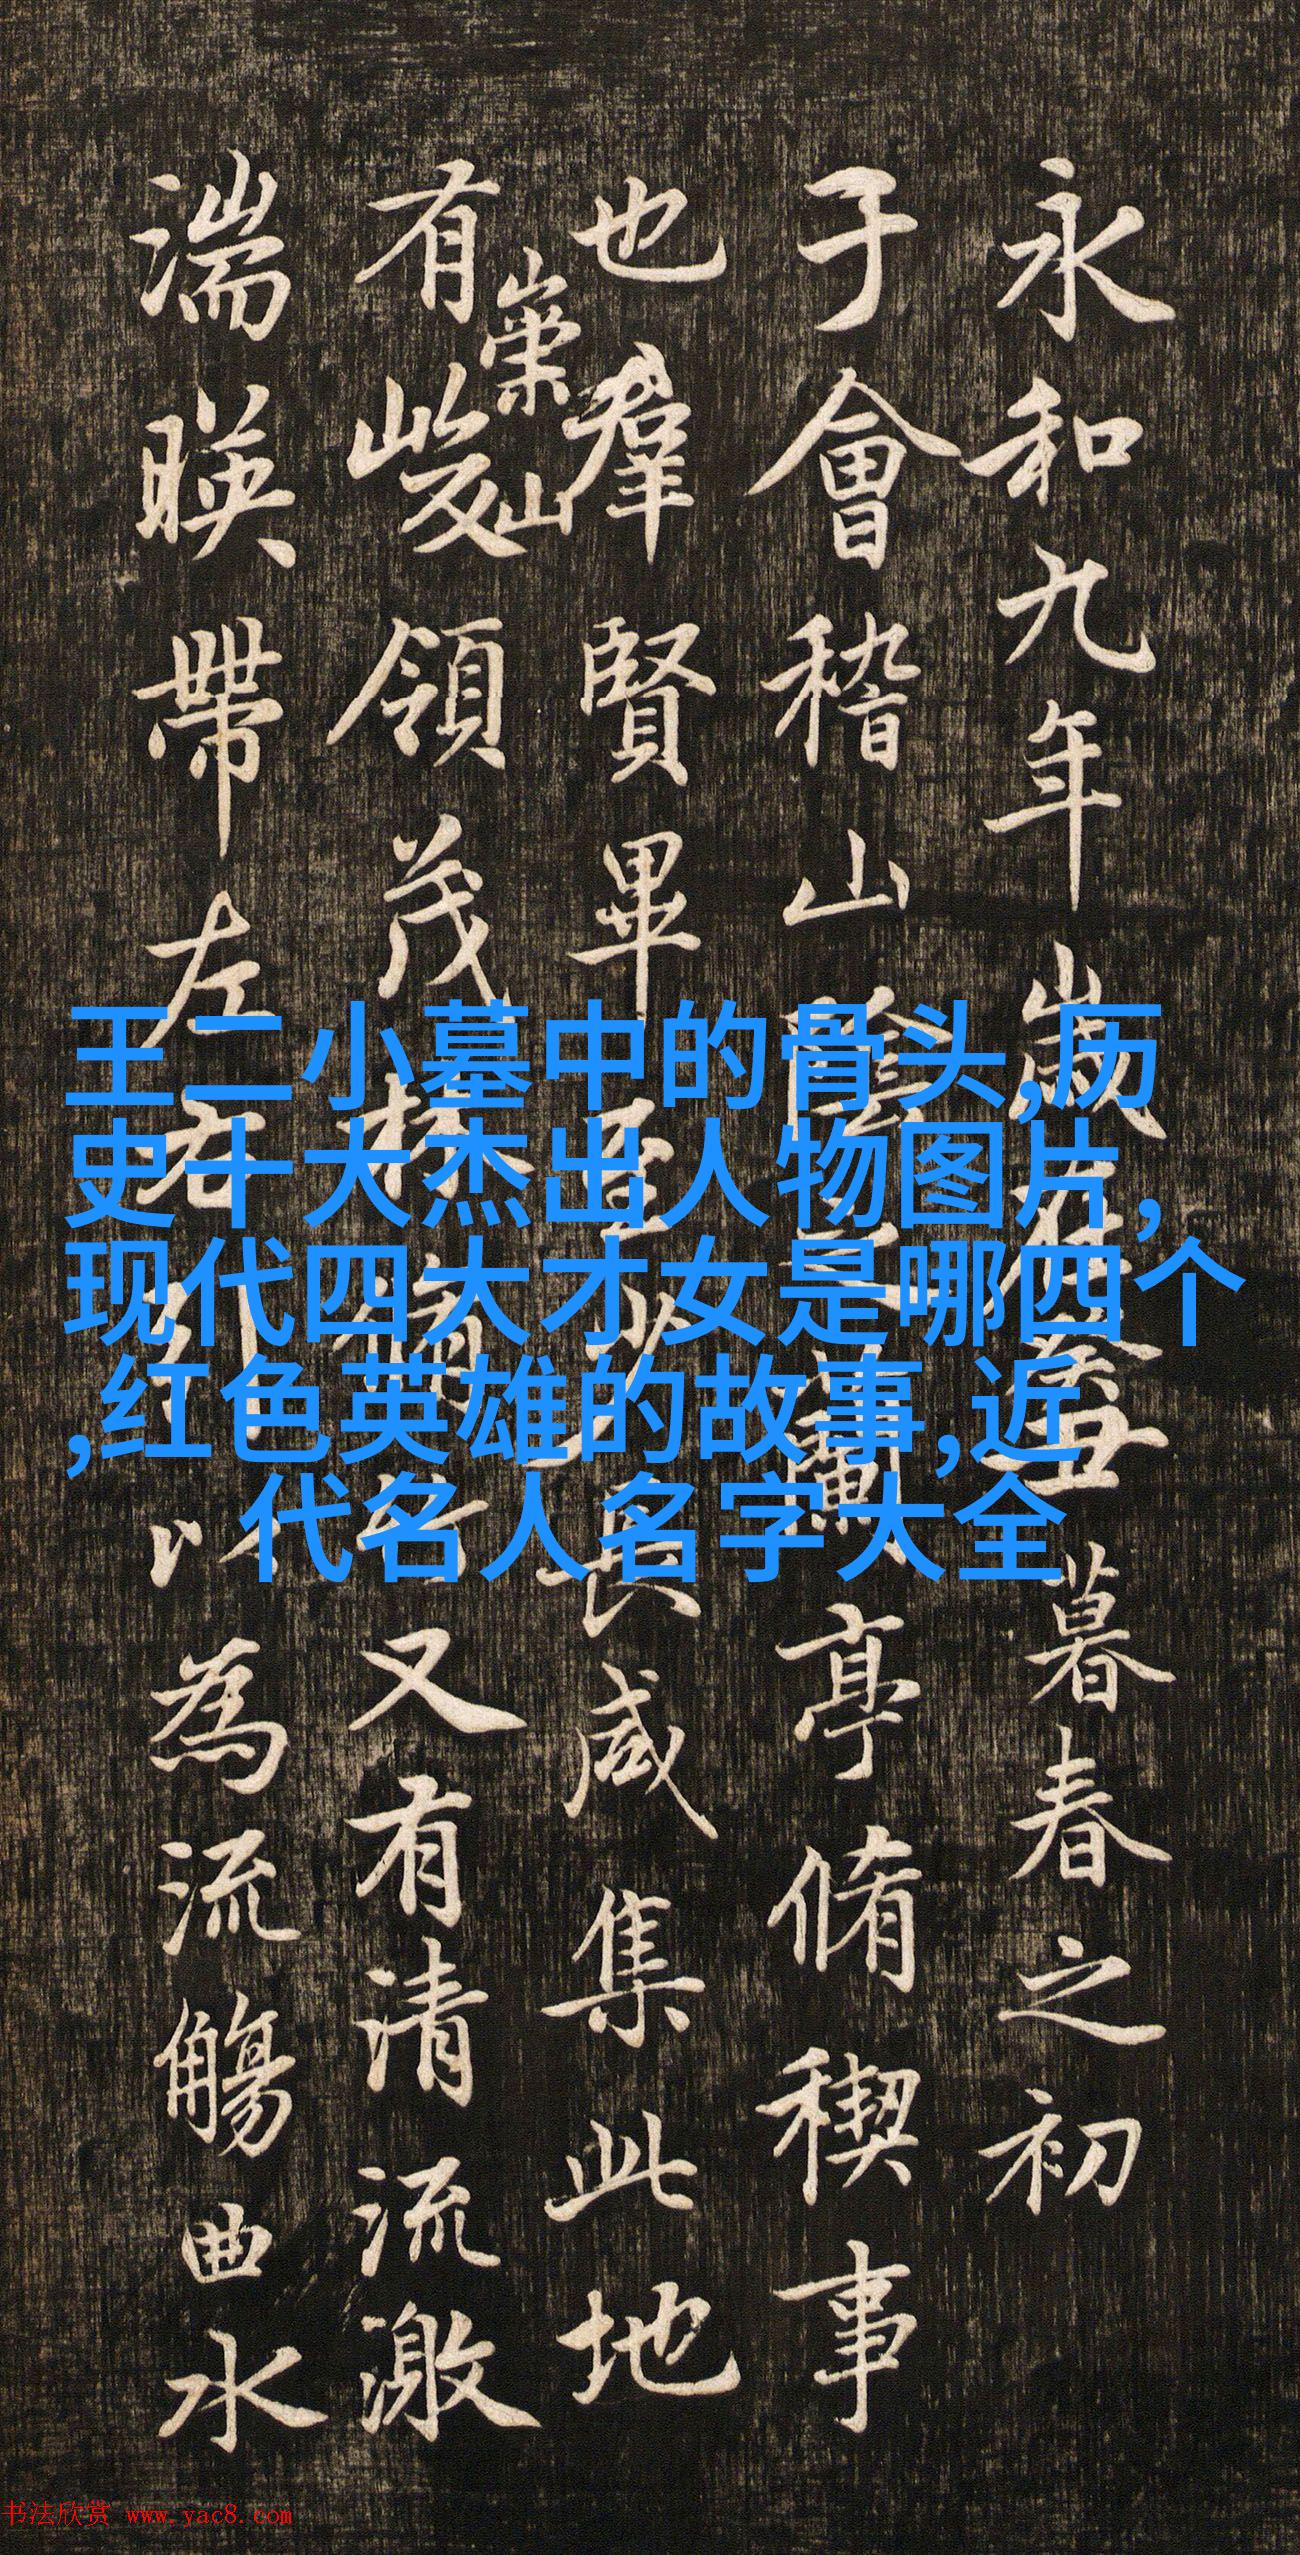 永和九年歲在癸丑暮春之初
于會稽山陰之蘭亭脩稧事
也羣賢畢至少長咸集此地
有崇山峻領茂林脩竹又有清流激
湍暎帶左右引以為流觴曲水
王二小墓中的骨头,历
史十大杰出人物图片,
现代四大才女是哪四个
,红色英雄的故事,近
代名人名字大全
书法欣赏 www.yac8.com